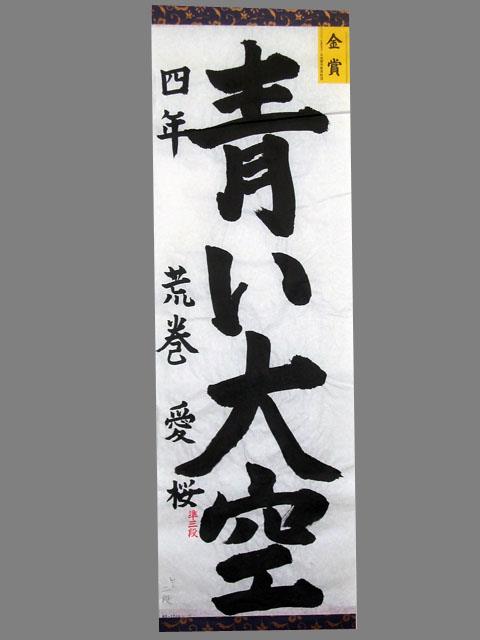 金賞
青い大空
四年 荒巻 愛桜
準三段
二段